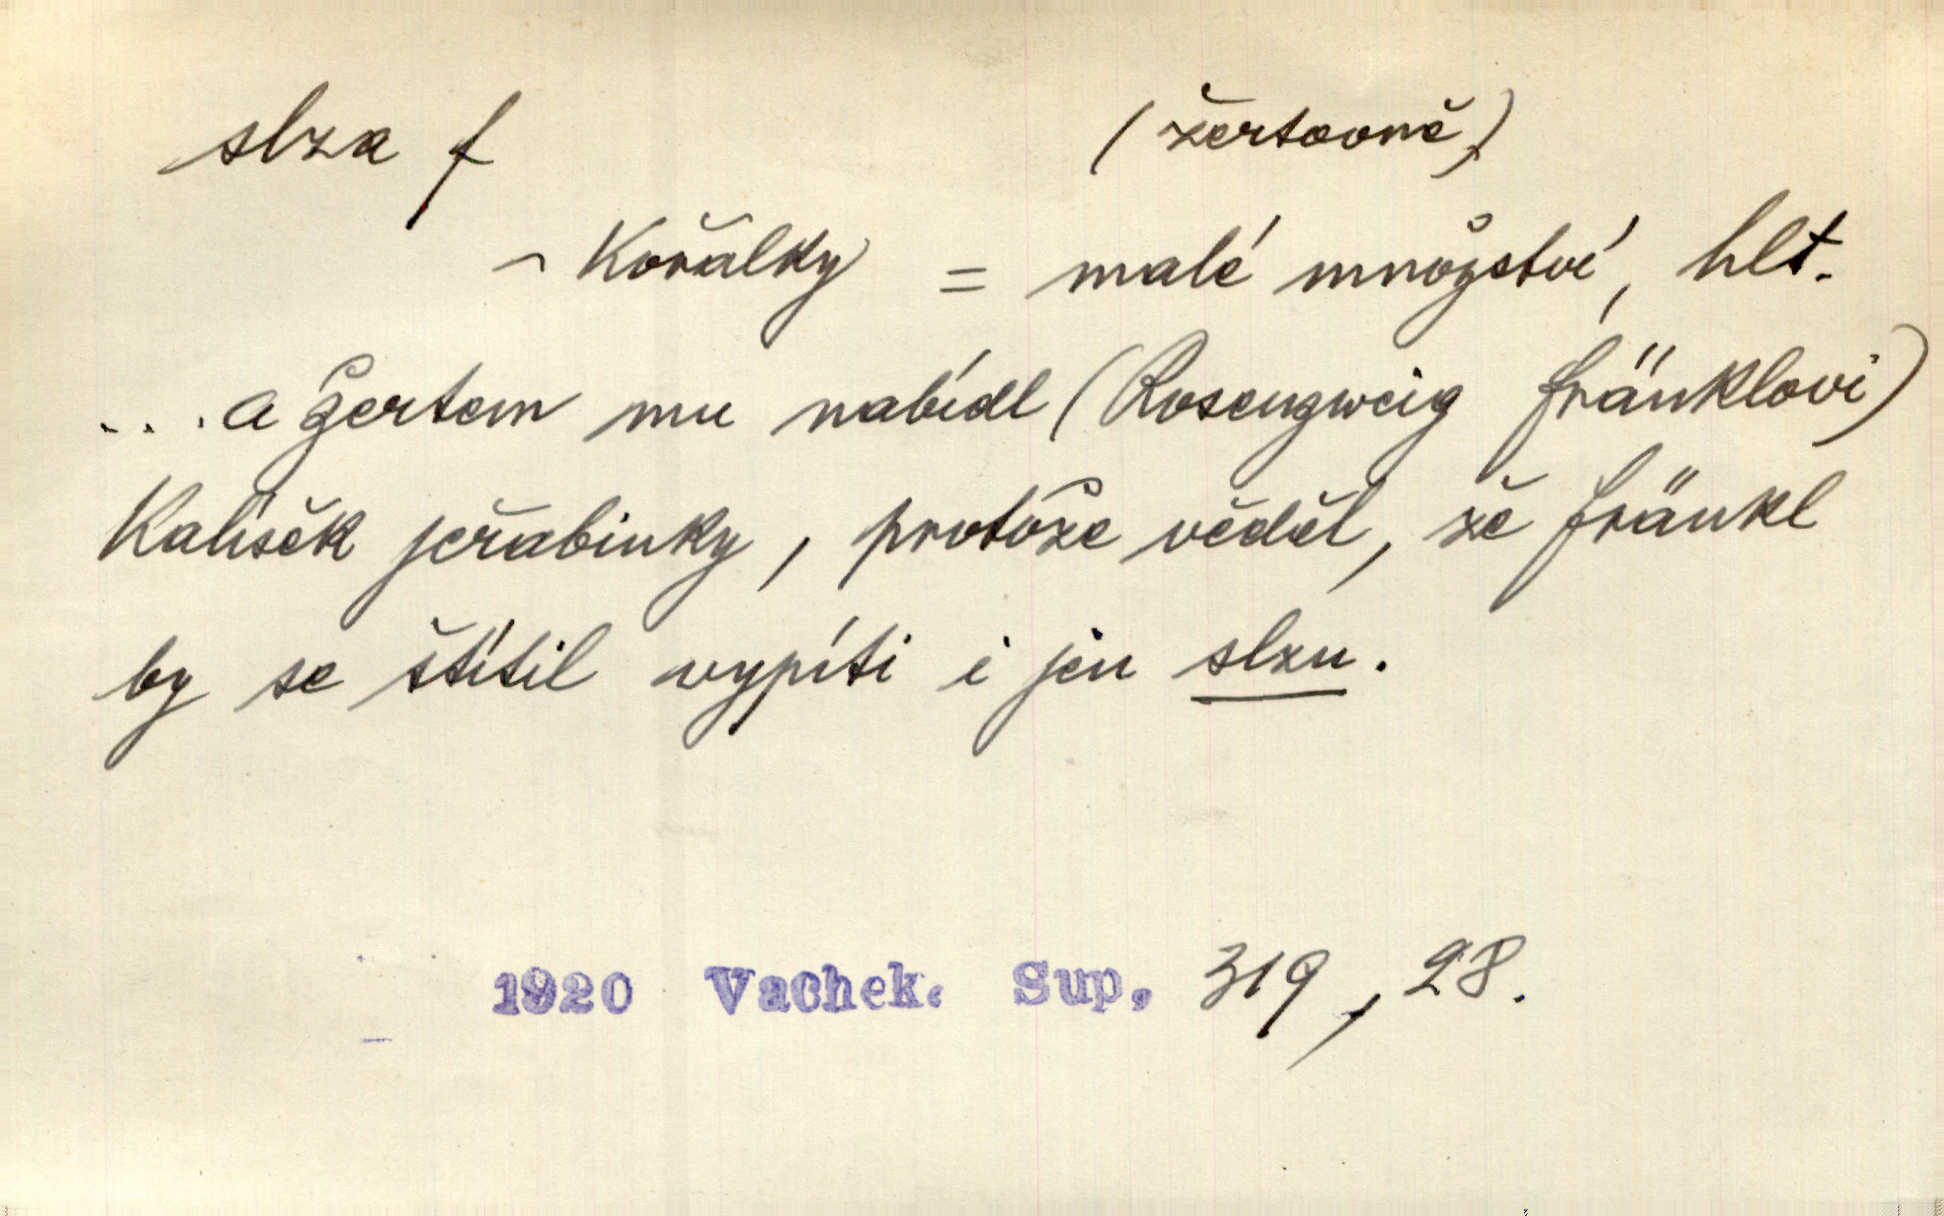 slza f (žertovně)
~ Kořalky = malé množství, hlt.
... a žertem mu nabídl (Rosenzweig Fränklovi)
Kalíšek jeřabinky, protože věděl, že Fränkl
by se štítil vypíti i jen slzu.
1920 Vachek. Sup. 319, 28.